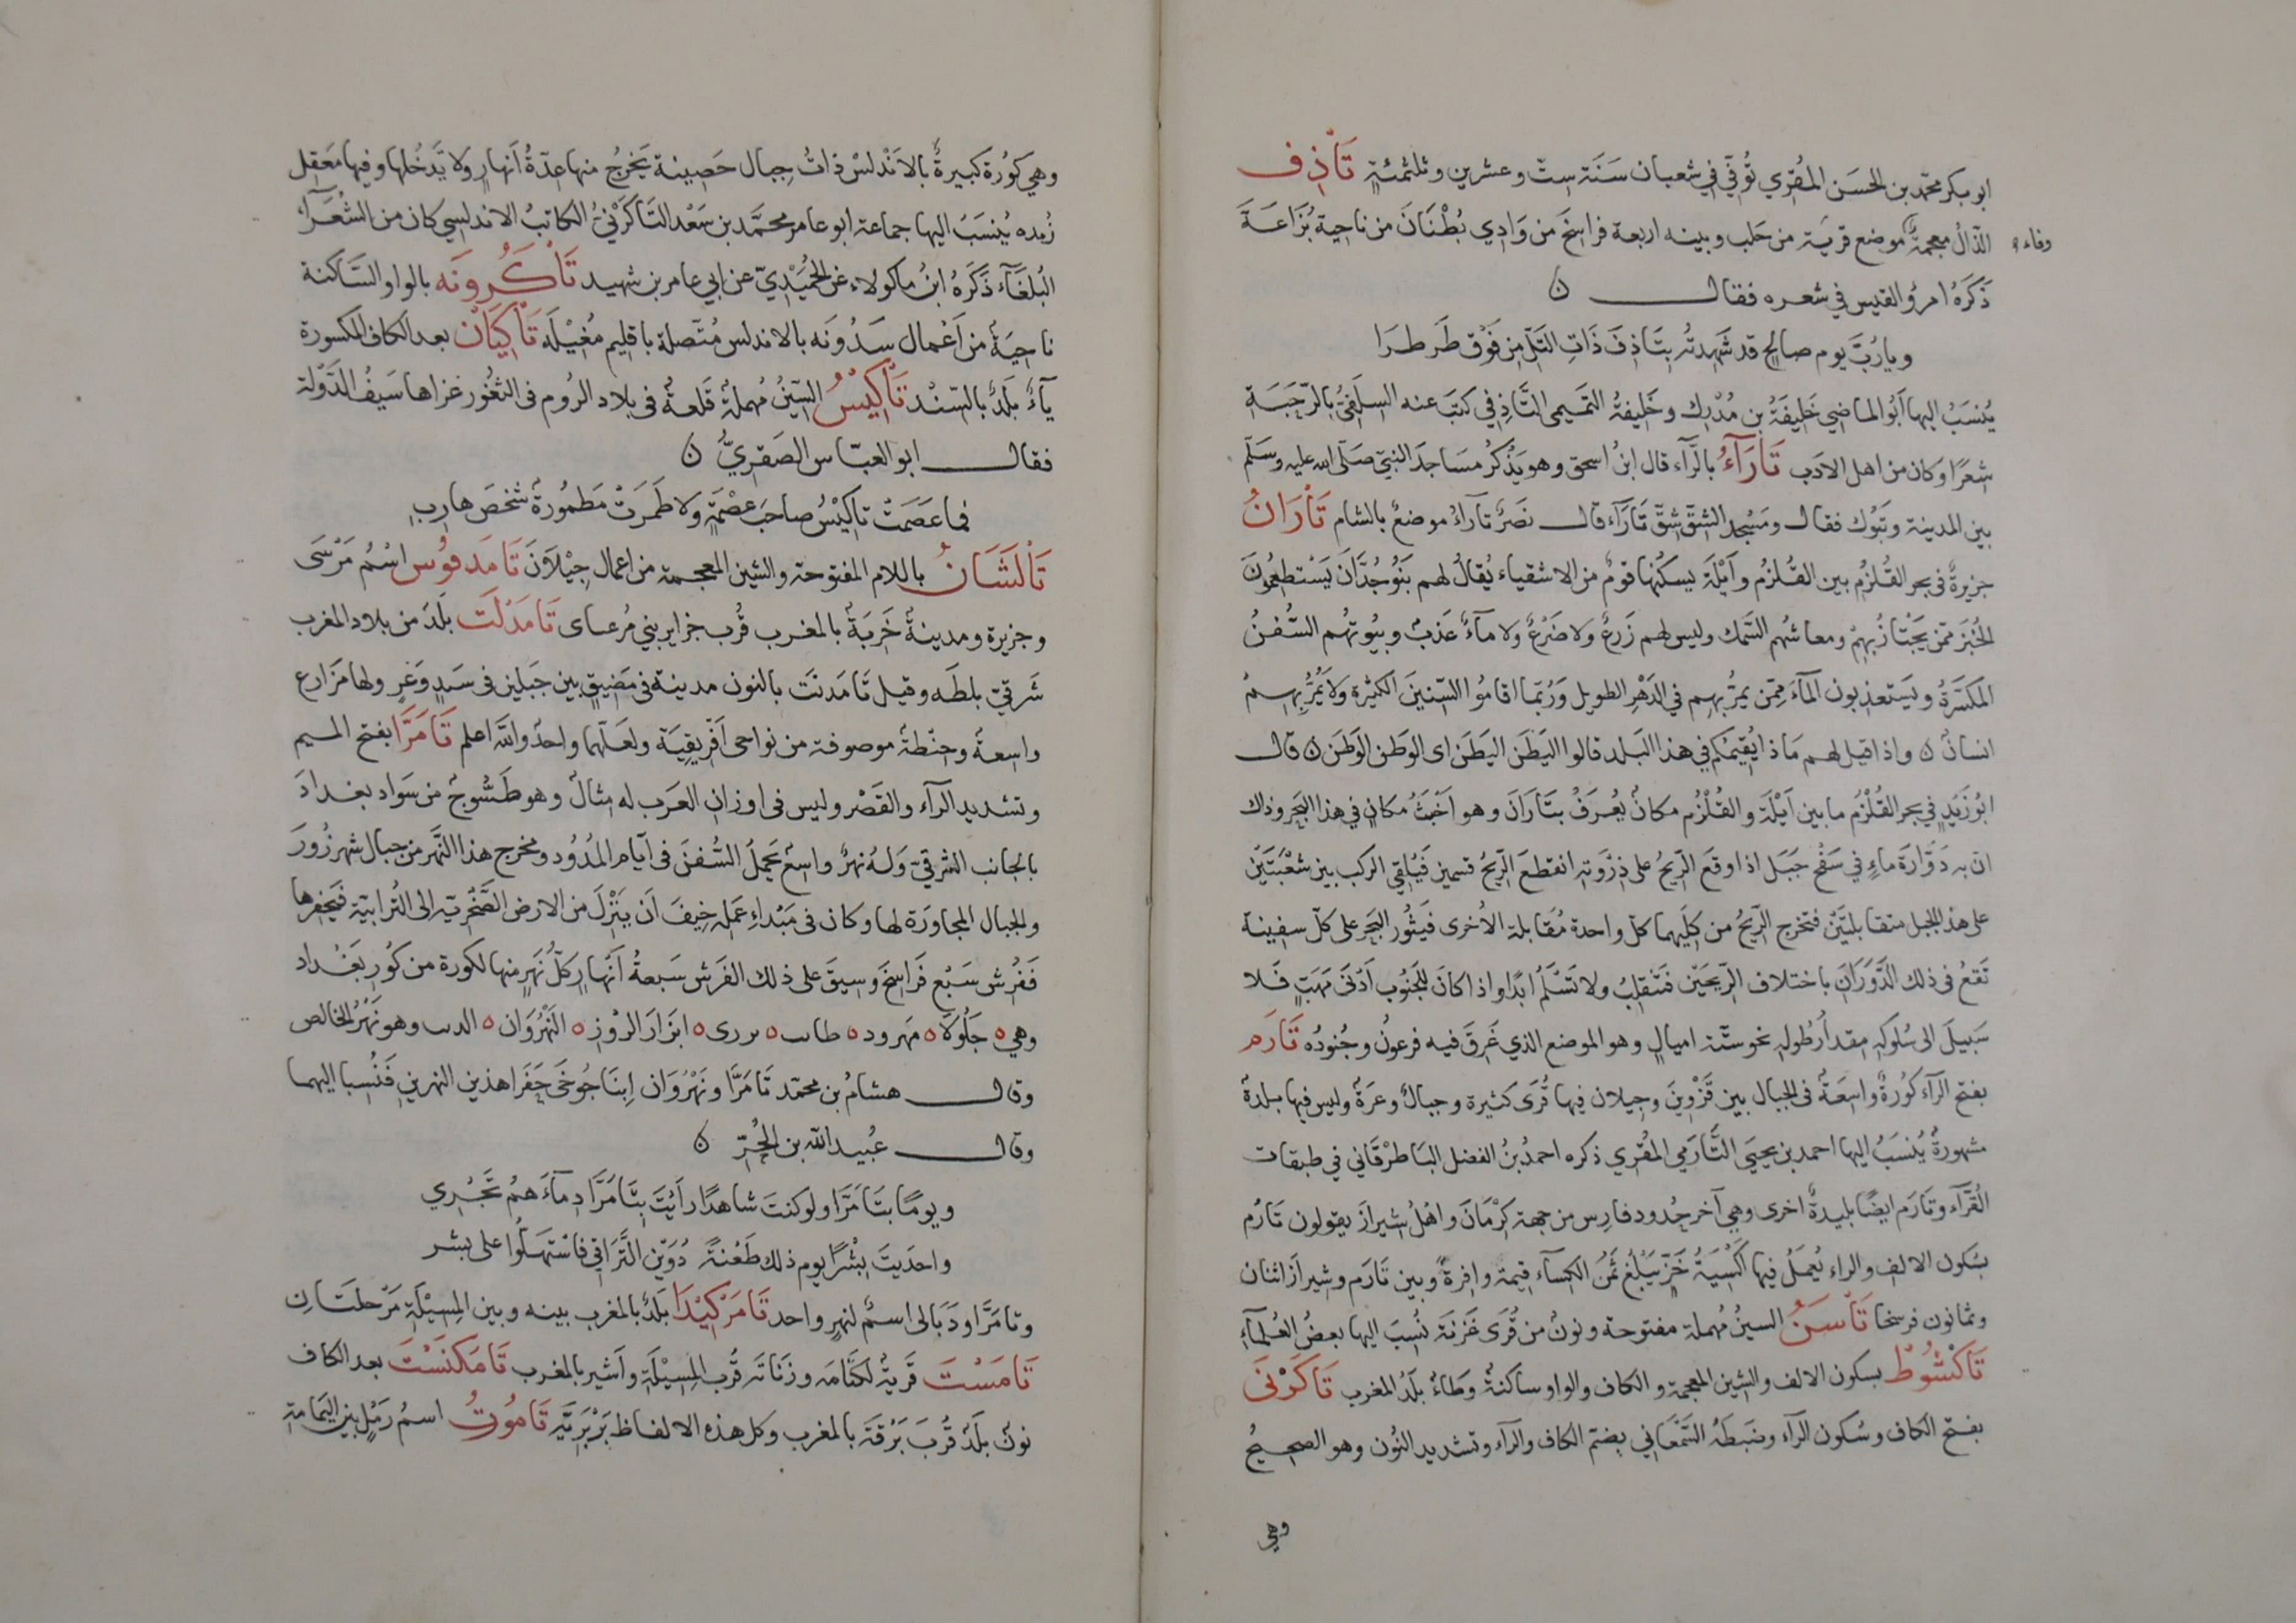 ابو بكر محمد بن الحسَن المُقرِي تُوُفّيَ في شعبان سَنَة ستّ وعشرين وثلثمئةٍ تَأذِف
الذّالُ معجمةٌ موضع قريَة من حلب وبينه اربعة فراسخَ من وَادِي بُطْنَانَ من ناحية بُزَاعَةَ
وفاء
ذَكَرَهُ امرؤ القيس في شعره فقال ن
ويا رُبَّ يوم صالحٍ قد شَهِدتُه بِتَاذِفَ ذَاتِ التَلِّ مِن فَوْق طَرطرَا
يُنسَبُ اليها اَبُو الماضي خَليفَةُ بن مُدْرِك وخَليفةُ التميمي التَّاذِفي كتبَ عنه السلَفيُّ بالرّحَبَةِ
شعرًا وكان من اهل الادَب تَارَآءُ بالرَّآء قال ابنُ اسحق وهو يَذْكُرُ مسَاجدَ النبيّ صَلّى الله عليه وسَلّم
بين المدينة وتَبُوك فقال ومَسْجد الشقّ شِقّ تَارَآء قال نَصْرٌ تَارَآءُ موضعٌ بالشام تَارَانُ
جزيرةٌ في بحر القُلزُم بين القُلزُم وأَيْلَة يسكُنها قومٌ من الاشقياء يُقالُ لهم بَنُو جُدَّانَ يَسْتطعِمُونَ
الخُبْزَ ممّن يَجْتازُ بهِمْ ومعاشُهم السَّمك وليس لهم زَرعٌ ولا ضَرْعٌ ولا مآءٌ عَذبٌ وبيُوتهُم السُّفُنُ
المكَسَّرَةُ ويَستعذِبون المآءَ ممّن يمرّ بهِم في الدَهْرِ الطويل وَرُبّما اقامُوا السّنينَ الكثيرة ولا يمُرُّ بهِمْ
انسانٌ ن واذا قيل لهم مَا ذا يُقيمُكم في هذا البَلد قالوا البَطَن البَطَن اى الوطَن الوَطَن ن قال
ابُو زَيْدٍ في بحر القُلْزُم ما بين اَيْلَةَ والقُلْزُم مكانٌ يُعرَفُ بتَارَانَ وهو اَخْبَثُ مكانٍ في هذا البَحر وذاك
انّ به دَوّارَةَ ماءٍ في سَفْح جَبَل اذا وقعَ الرّيحُ على ذِرْوَتِهِ انقطعَ الرّيحُ قسمين فَيُلقي الركب بين شُعْبَتَيْن
على هذا الجبل متقابلتَيْن فتَخرج الرّيحُ من كِلَيهما كلّ واحدة مُقَابلة الاُخرى فَيَثُور البَحر على كلّ سفينة
تَقعُ في ذلك الدَّوَرَان باختلاف الرّيحَين فتَنقلِبُ ولا تَسْلَمُ ابدًا واذا كانَ للجَنُوب اَدْنَى مَهَبٍّ فَلا
سَبيلَ الى سُلوكِهِ مقدارُ طُولهِ نحو ستّة اميالٍ وهو الموضع الذي غَرِقَ فيه فرعونُ وجُنودُه تَارَم
بفتح الرّآء كُورَةٌ واسِعَةٌ في الجبال بين قَزْوِينَ وجيلان فيها قُرًى كثيرة وجبالٌ وعرَةٌ وليس فيها بلدةٌ
مشهورةٌ يُنسَبُ اليها احمد بن يحيَى التَّارَمي المُقرِي ذكره احمدُ بنُ الفضل البَاطرْقَاني في طبقات
القُرَّآء وتَارَم ايضًا بليدةٌ اخرى وهي آخر حُدود فارِس من جهة كَرْمَانَ واهْلُ شيرازَ يقولون تَارْم
بسُكون الالف والراء يُعمَلُ فيها اَكْسِيَةُ خَزّ يَبْلُغ ثَمَنُ الكِسَآء قيمة وافِرةً وبين تَارَم وشيرازَ اثنان
وثمانون فرسخا تَاسَنُ السينُ مُهملة مفتوحة ونونٌ من قُرَى غَزنَةَ نُسِبَ اليها بعضُ العُلَمآءِ
تَاكْشُوطُ بسكون الالف والشين المعجمة والكاف والواو ساكنةٌ وطَاءٌ بلَدٌ المغرب تَاكَرْنَى
بفتح الكاف وسُكون الرّآء وضبطَهُ السّمْعَاني بضمّ الكاف والرآء وتشديد النُون وهو الصحيحُ
وهي
وهي كُورَة كبيرةٌ بالاَنْدلسْ ذاتُ جِبال حَصِينة يَخرُجُ منها عِدّةُ اَنهارٍ ولا يَدخُلها وفيها مَعقِل
رُنده يُنسَبُ اليها جماعة ابو عامر محمَّد بن سَعْد التَاكُرُنّيُّ الكاتبُ الاندلسي كان من الشُعَرَآء
البُلَغَآء ذَكَرَهُ ابنُ ماكولاء عَن الحُمَيْدِيّ عن ابي عامر بن شهيد تَاكَرُونَه بالواو السّاكنة
ناحِيَةٌ من اَعْمال سَدُونَه بالاندلس مُتّصلة باقليم مُغِيْلَه تَاكِيَان بعد الكاف المكسورة
يآءٌ بلَدٌ بالسّنْد تَاكِيْسُ السّيْنُ مُهملةٌ قَلعةٌ في بلاد الرُوم في الثغُور غزاها سَيفُ الدَّوْلة
فقال ابو العبّاس الصَفرِيُّ ن
فما عَصَمَتْ تاكِيْسُ صاحبَ عِصْمَةٍ ولا طَمَرَتْ مَطمُورةٌ شَخصَ هاربِ
تَالَشَانُ باللام المفتوحة والشين المعجمة من اعمال جِيْلاَنَ تَامَدفوُس اسْمُ مَرْسَى
وجزيرة ومدينةٌ خَرِبَةٌ بالمغرب قُرب جزاير بني مُرعناى تَامَدْلَت بلَدٌ من بلاد المغرب
شَرقيّ بلطَه وقيل تَامَدنَت بالنون مدينة في مَضيقٍ بين جَبلين في سَندٍ وَعرٍ ولها مَزَارع
واسِعةٌ وحِنْطةٌ موصوفة من نواحى اَفْريقِيَة ولعَلّهما واحدٌ والله اعلم تَامَرَّا بفتح الميم
وتشديد الرآء والقَصْر وليس في اوزان العرَب له مثالٌ وهو طَسُّوجٌ من سَواد بغدادَ
بالجانب الشرقيّ وَلهُ نهرٌ واسعٌ يَحمِلُ السُّفنَ في ايّام المُدُود ومخرج هذا النّهر من جبال شهرزُورَ
والجبال المجاوِرَة لها وكان في مَبْداءِ عَمَلِه خِيفَ اَن يَنْزِلَ من الارض الصَّخْريّة الى التُرابيّة فيَحفِرها
فَفُرِش سَبْعَ فَراسِخَ وَسِيقَ على ذلك الفَرش سَبعةُ اَنهارٍ كلّ نَهرٍ منها لكورة من كُوَر بَغْداد
وهي ه جَلُولاَ ه مَهرود ه طابت ه برزى ه ابزَار الرّوُز ه النَهْرَوَان ه الدب وهو نَهْرُ الخالص
وقال هشامُ بن محمّد تَامَرَّا ونَهْرَوَان اِبنَا جُوخَى حَفَرا هذين النهرينِ فَنُسِبا اليهما
وقال عُبيد الله بن الحُرّ ن
ويومًا بتَامَرَّا ولو كنتَ شاهدًا رَأَيْتَ بتَامَرَّا دِمآءَهُمُ تَجْرِي
واحذَيتُ بِشْرًا يوم ذلك طَعْنةً دُوَيْن التَّرَاقي فاستَهلُّوا على بشر
وتامَرَّا ودَبَالى اسمٌ لنهرٍ واحد تَامَرْكِيْدَا بلَدٌ بالمغرب بينه وبين المِسِيْلَة مَرْحلتَانِ
تَامَسْتَ قَريَةٌ لكُتَامَة وزَنَاتَه قُرب المِسِيْلَة واَشير بالمغرب تَامَكَنْسَتَ بعد الكاف
نونٌ بلَدٌ قُربَ بَرْقَة بالمغرب وكل هذه الالفاظ بَرْبَريّة تَامُوْتُ اسمُ رَمْلٍ بين اليَمامة